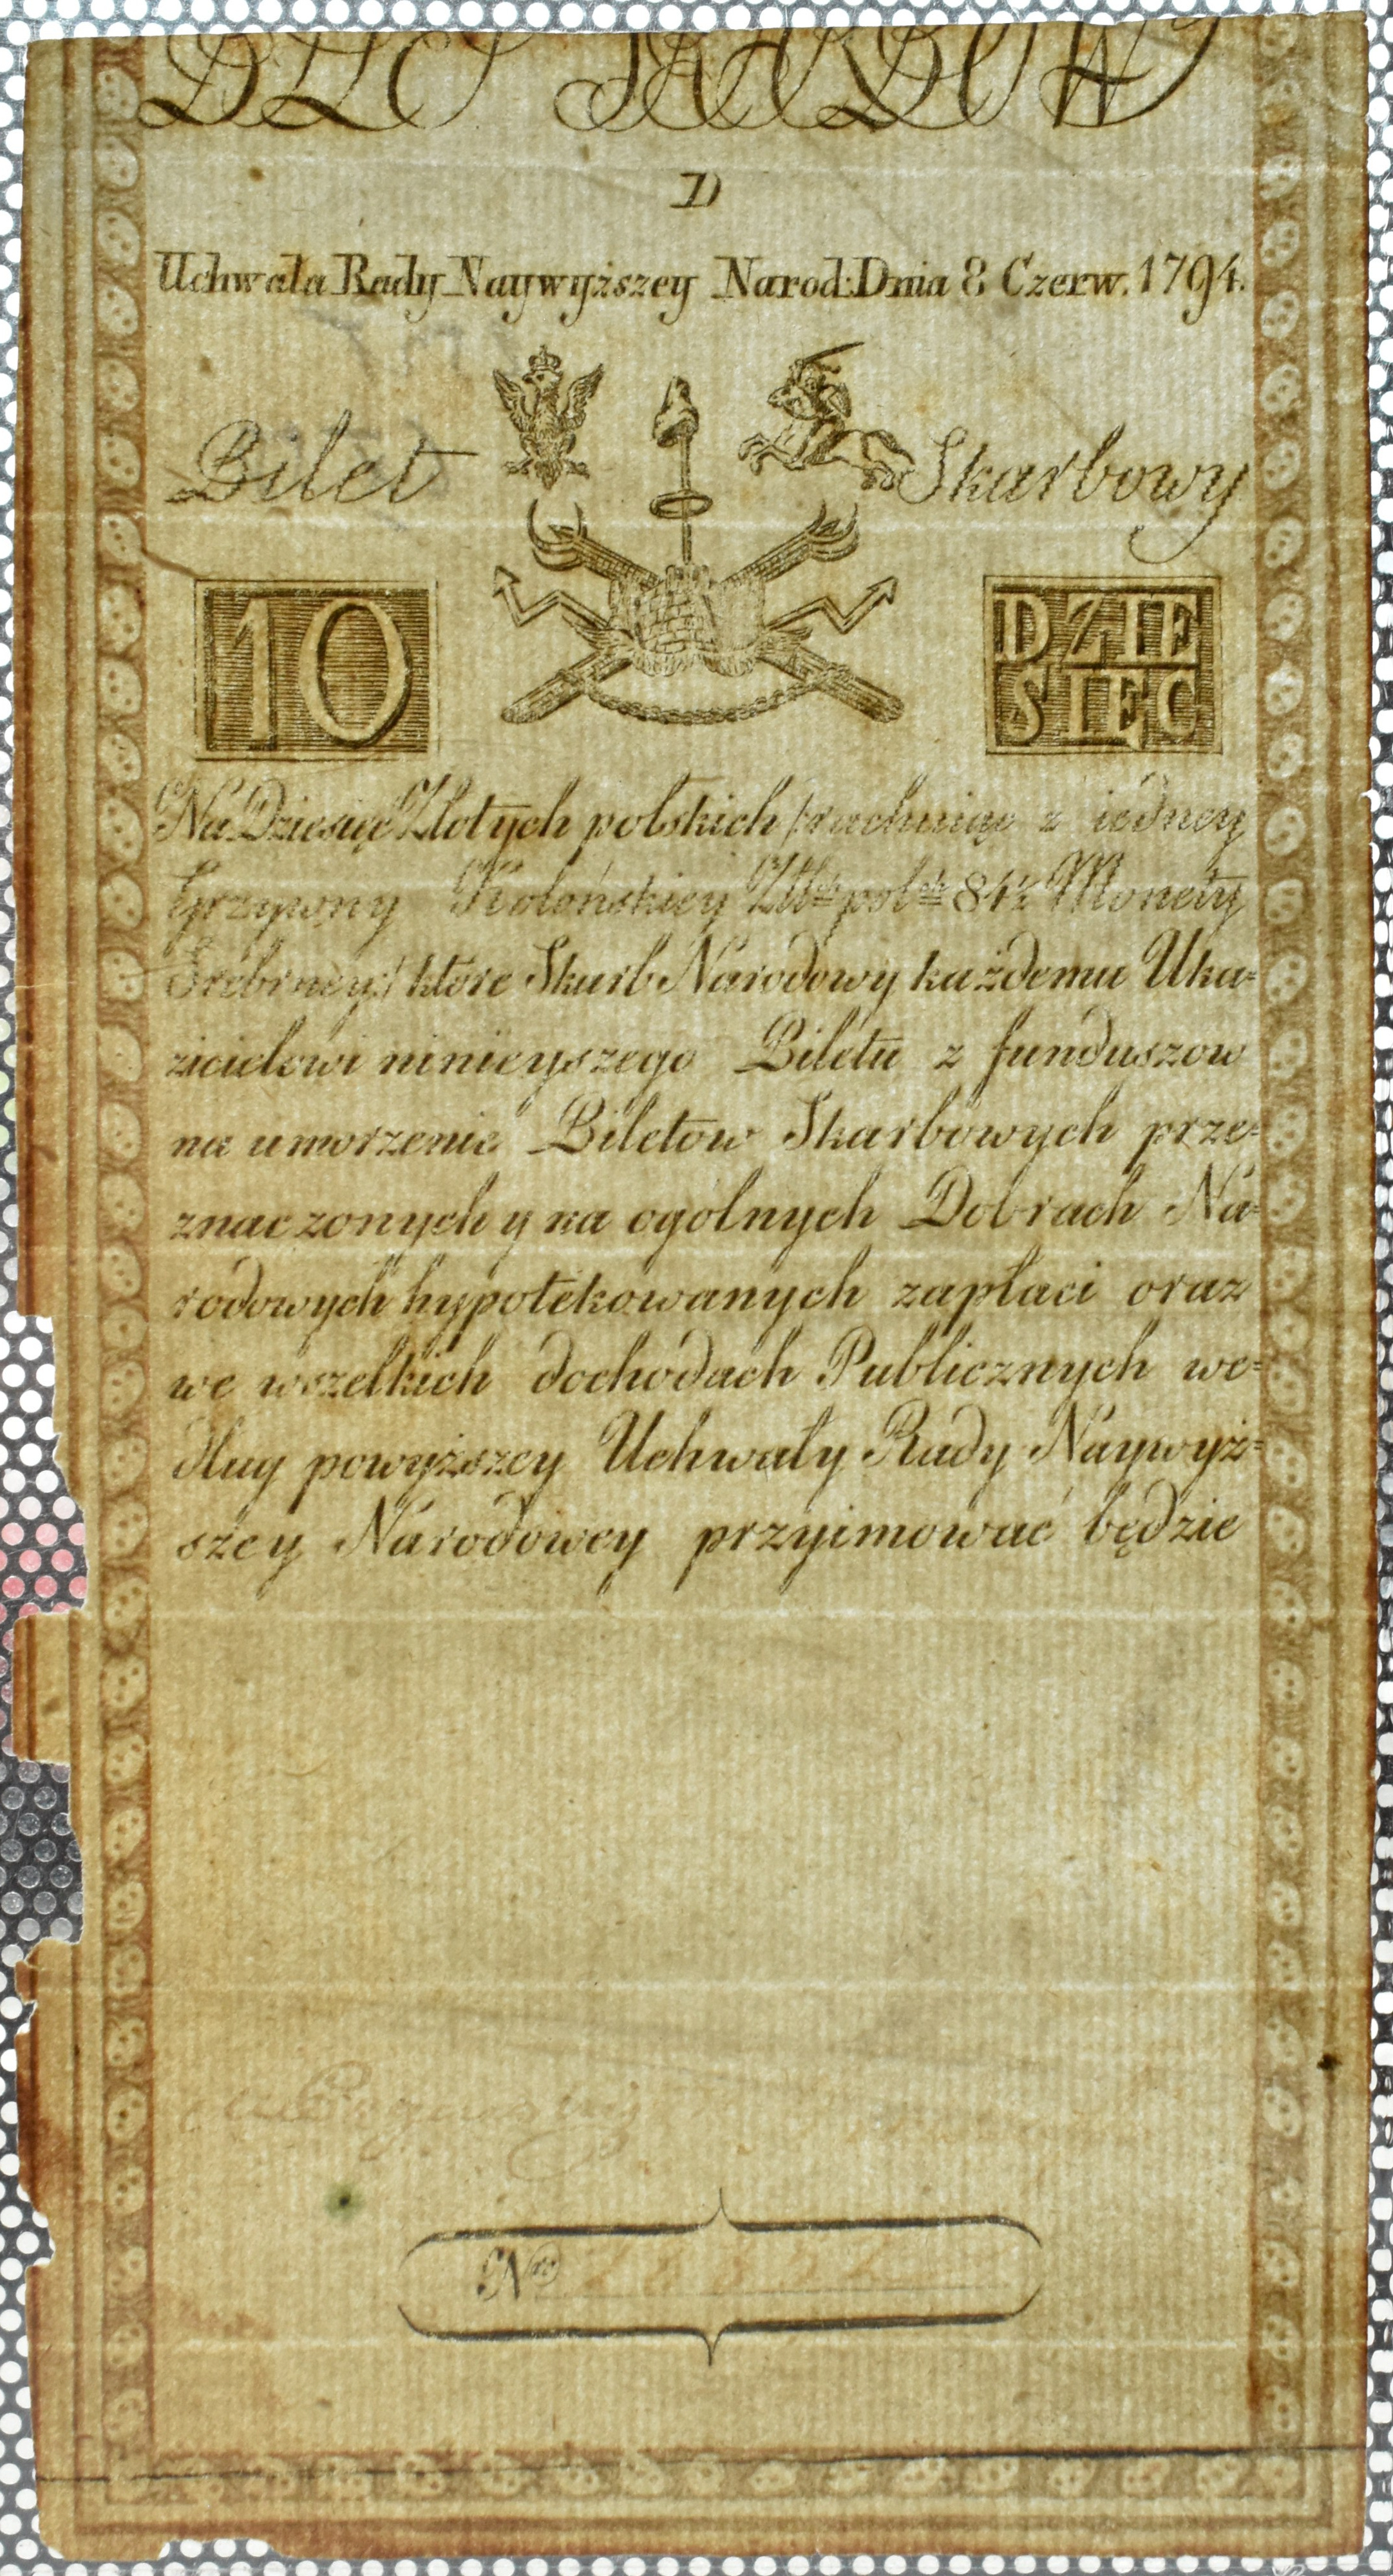 D
Uchwała Rady Naywyższey Narod: Dnia 8 Czerw. 1794.
Bilet Skarbowy
10
DZIE
SIĘC
Na Dziesięć Złotych polskich /:rachuiąc z iedney
Grzywny Kolońskiey Zł:ch pol:ch 84½ Monety
Srebrney:/ które Skarb Narodowy każdemu Uka=
zicielowi ninieyszego Biletu z funduszow
na umorzenie Biletow Skarbowych prze=
znaczonych y na ogolnych Dobrach Na=
rodowych hypotekowanych zapłaci oraz
we wszelkich dochodach Publicznych we=
dług powyższey Uchwały Rady Naywyż=
szey Narodowey przyimować będzie
Nro